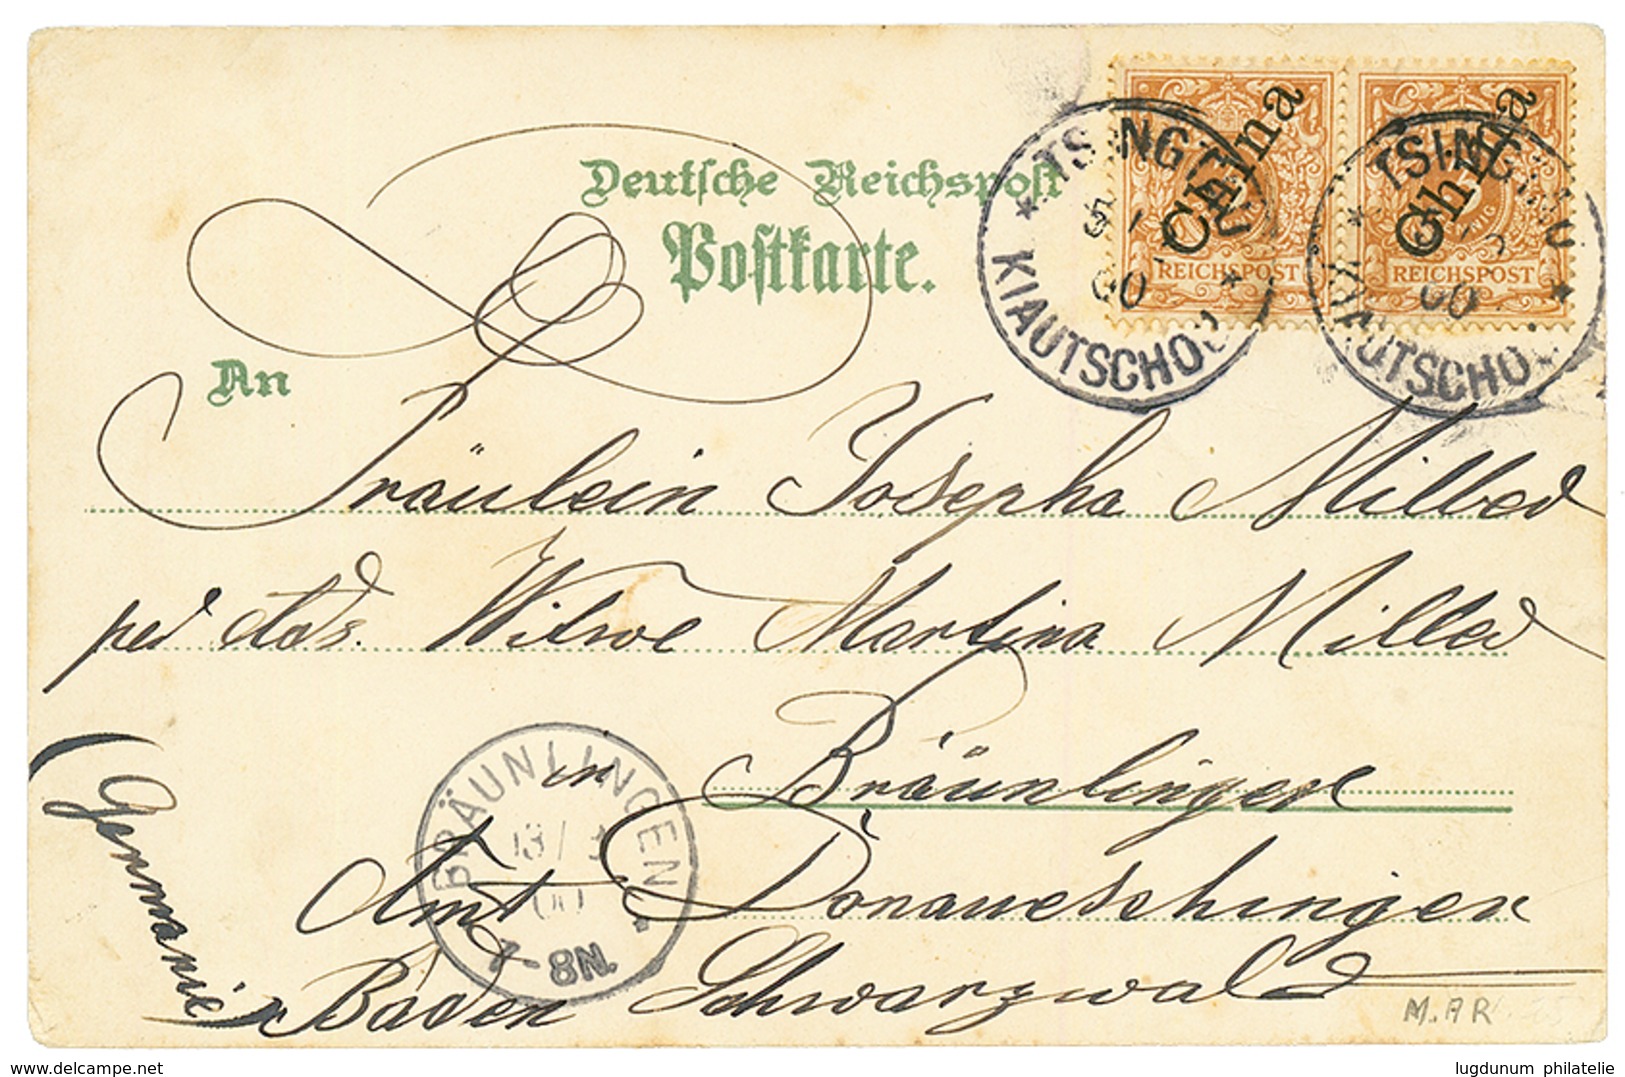 Deutsche Reichspost
Postkarte.
An
China
China
REICHSPOST
REICHSPOST
TSINGTAU
KIAUTSCHOU
00
TSINGTAU
KIAUTSCHOU
00
Fräulein Josepha Miller
per Wittwe Martina Miller
in Bräunlingen
Amt Donaueschingen
Baden Schwarzwald
(Germanie)
BRÄUNLINGEN
00
7-8N.
M.AR
www.delcampe.net
lugdunum philatelie